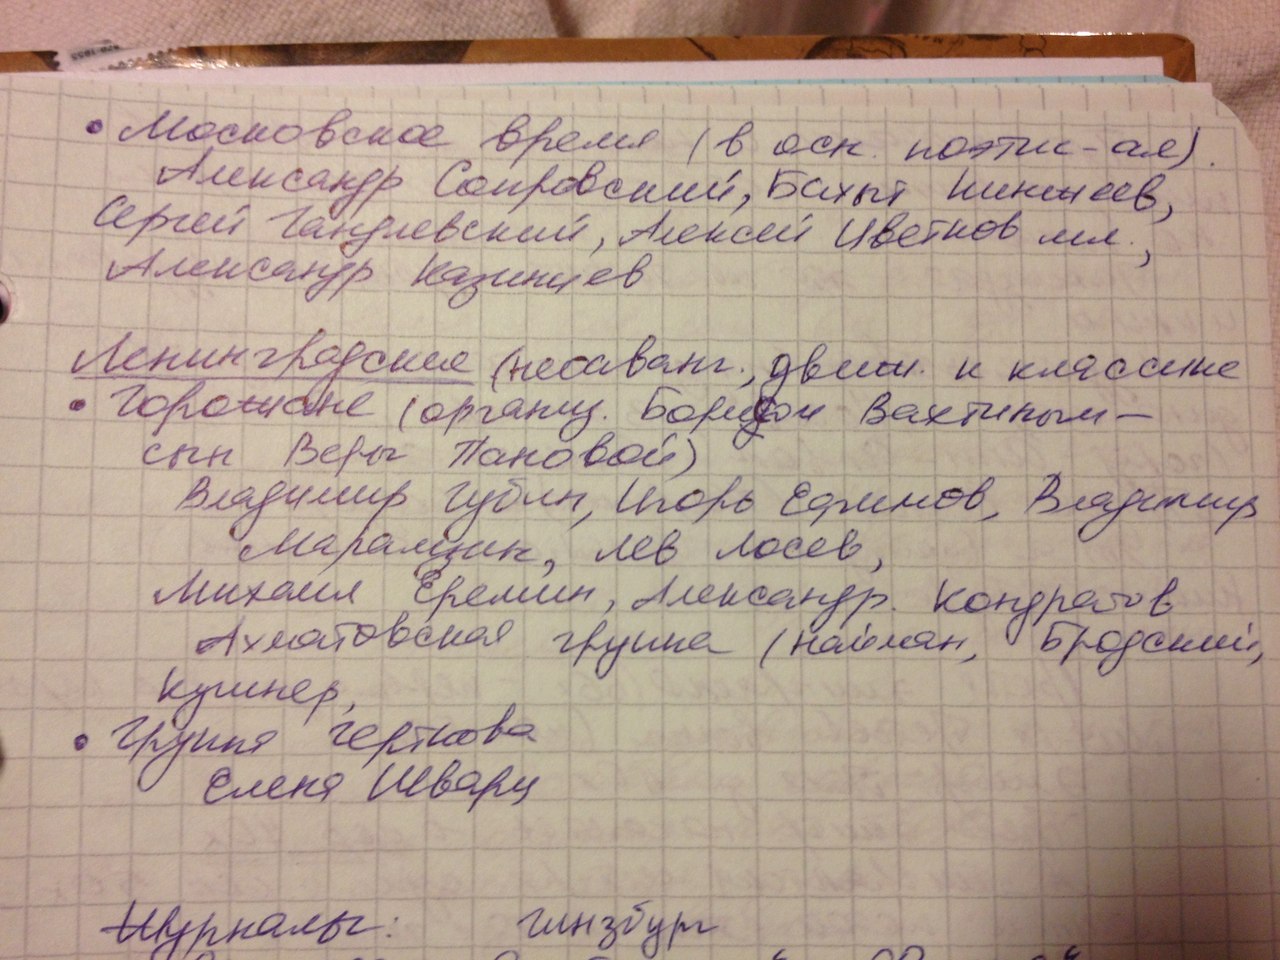 • Московское время (в осн. поэтич-ая).
Александр Сопровский, Бахыт Кинжеев,
Сергей Гандлевский, Алексей Цветков мл.,
Александр Казинцев
Ленинградские (неоаванг., движ. к классике
• Горожане (организ. Борисом Вахтиным –
сын Веры Пановой)
Владимир Губин, Игорь Ефимов, Владимир
Марамзин, Лев Лосев,
Михаил Еремин, Александр. Кондратов
Ахматовская группа (Найман, Бродский,
Кушнер,
• Группа Черткова
Елена Шварц
Журналы: Гинзбург